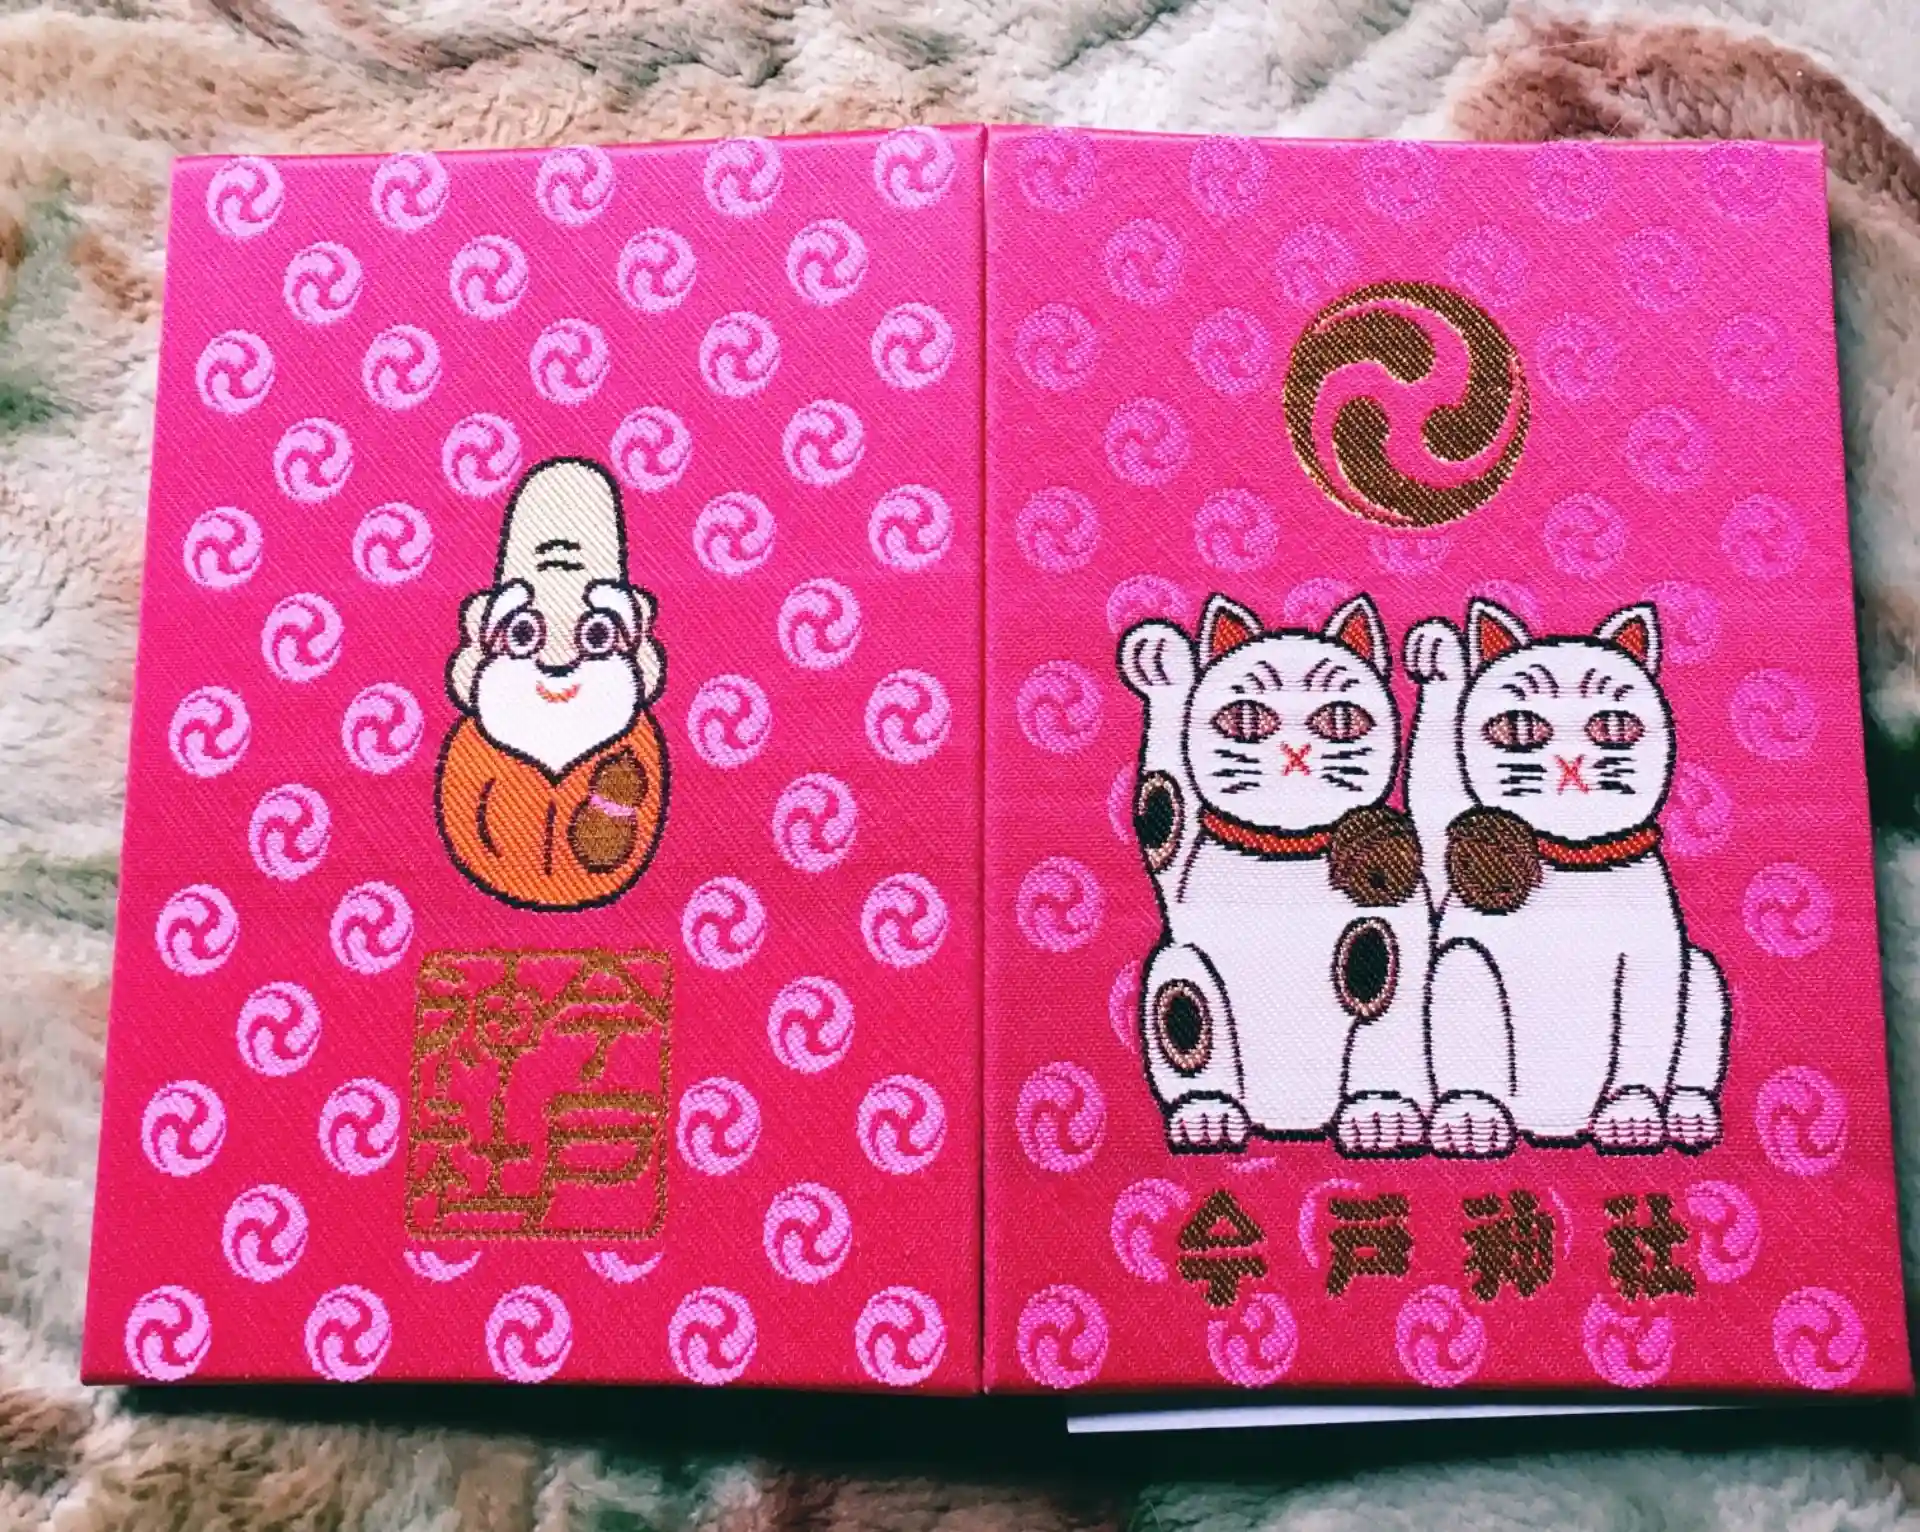 今戸神社
今戸
神社